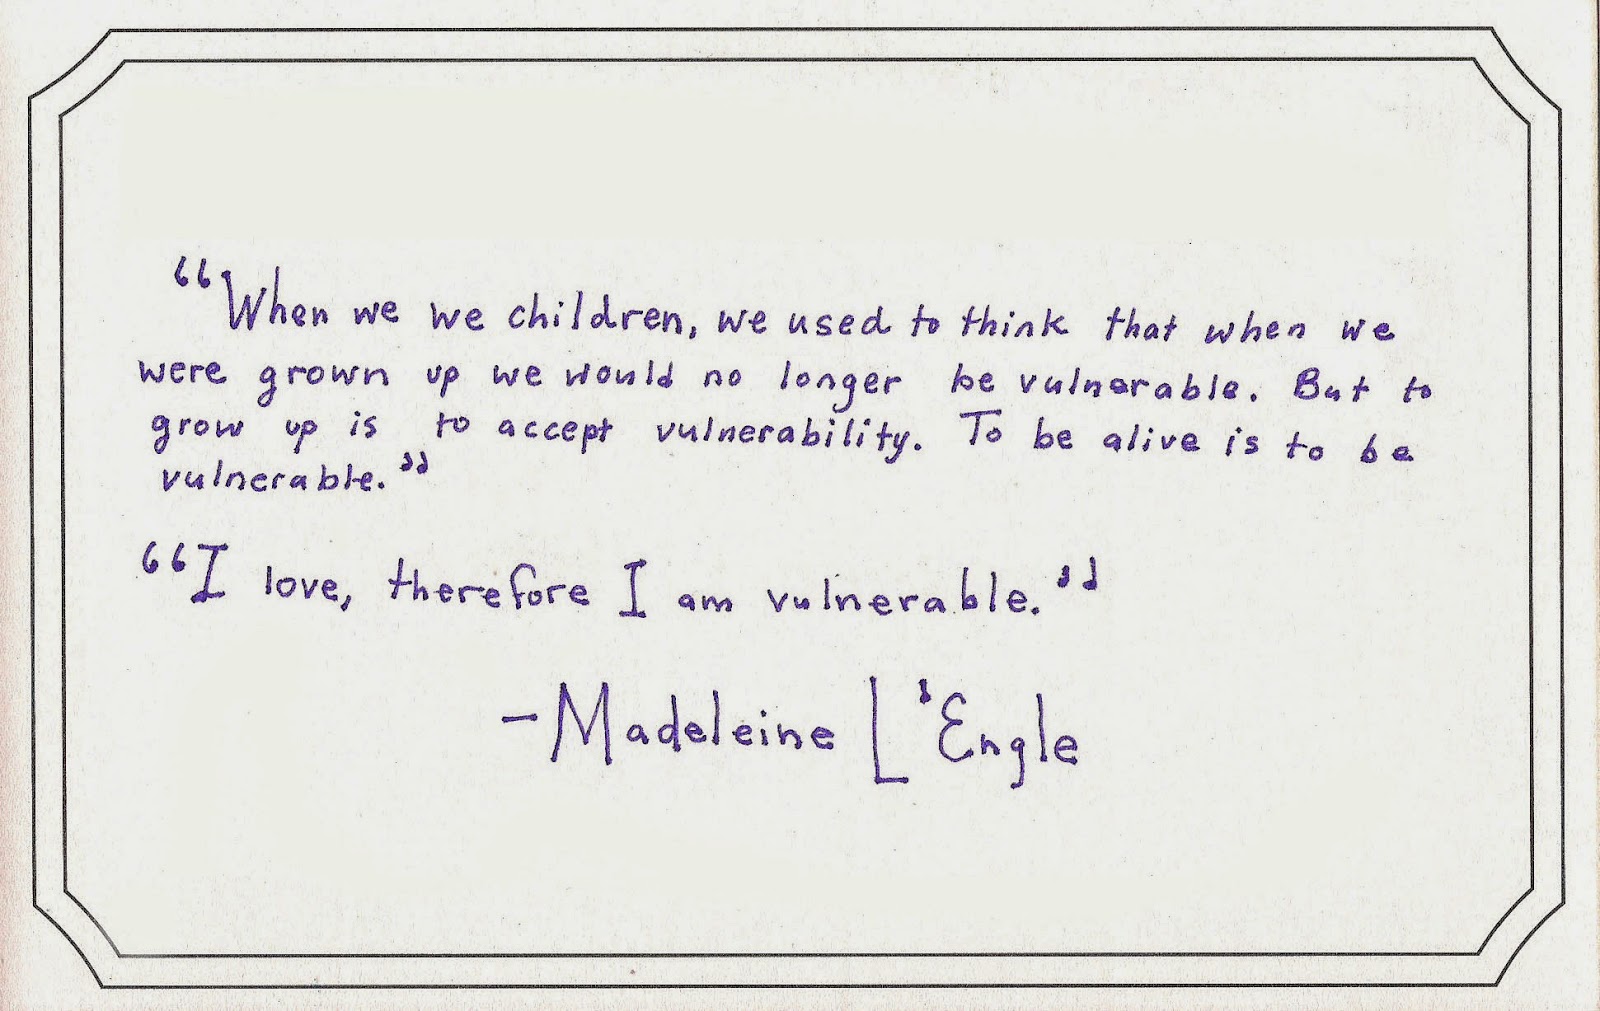 “When we we children, we used to think that when we
were grown up we would no longer be vulnerable. But to
grow up is to accept vulnerability. To be alive is to be
vulnerable.”
“I love, therefore I am vulnerable.”
-Madeleine L'Engle